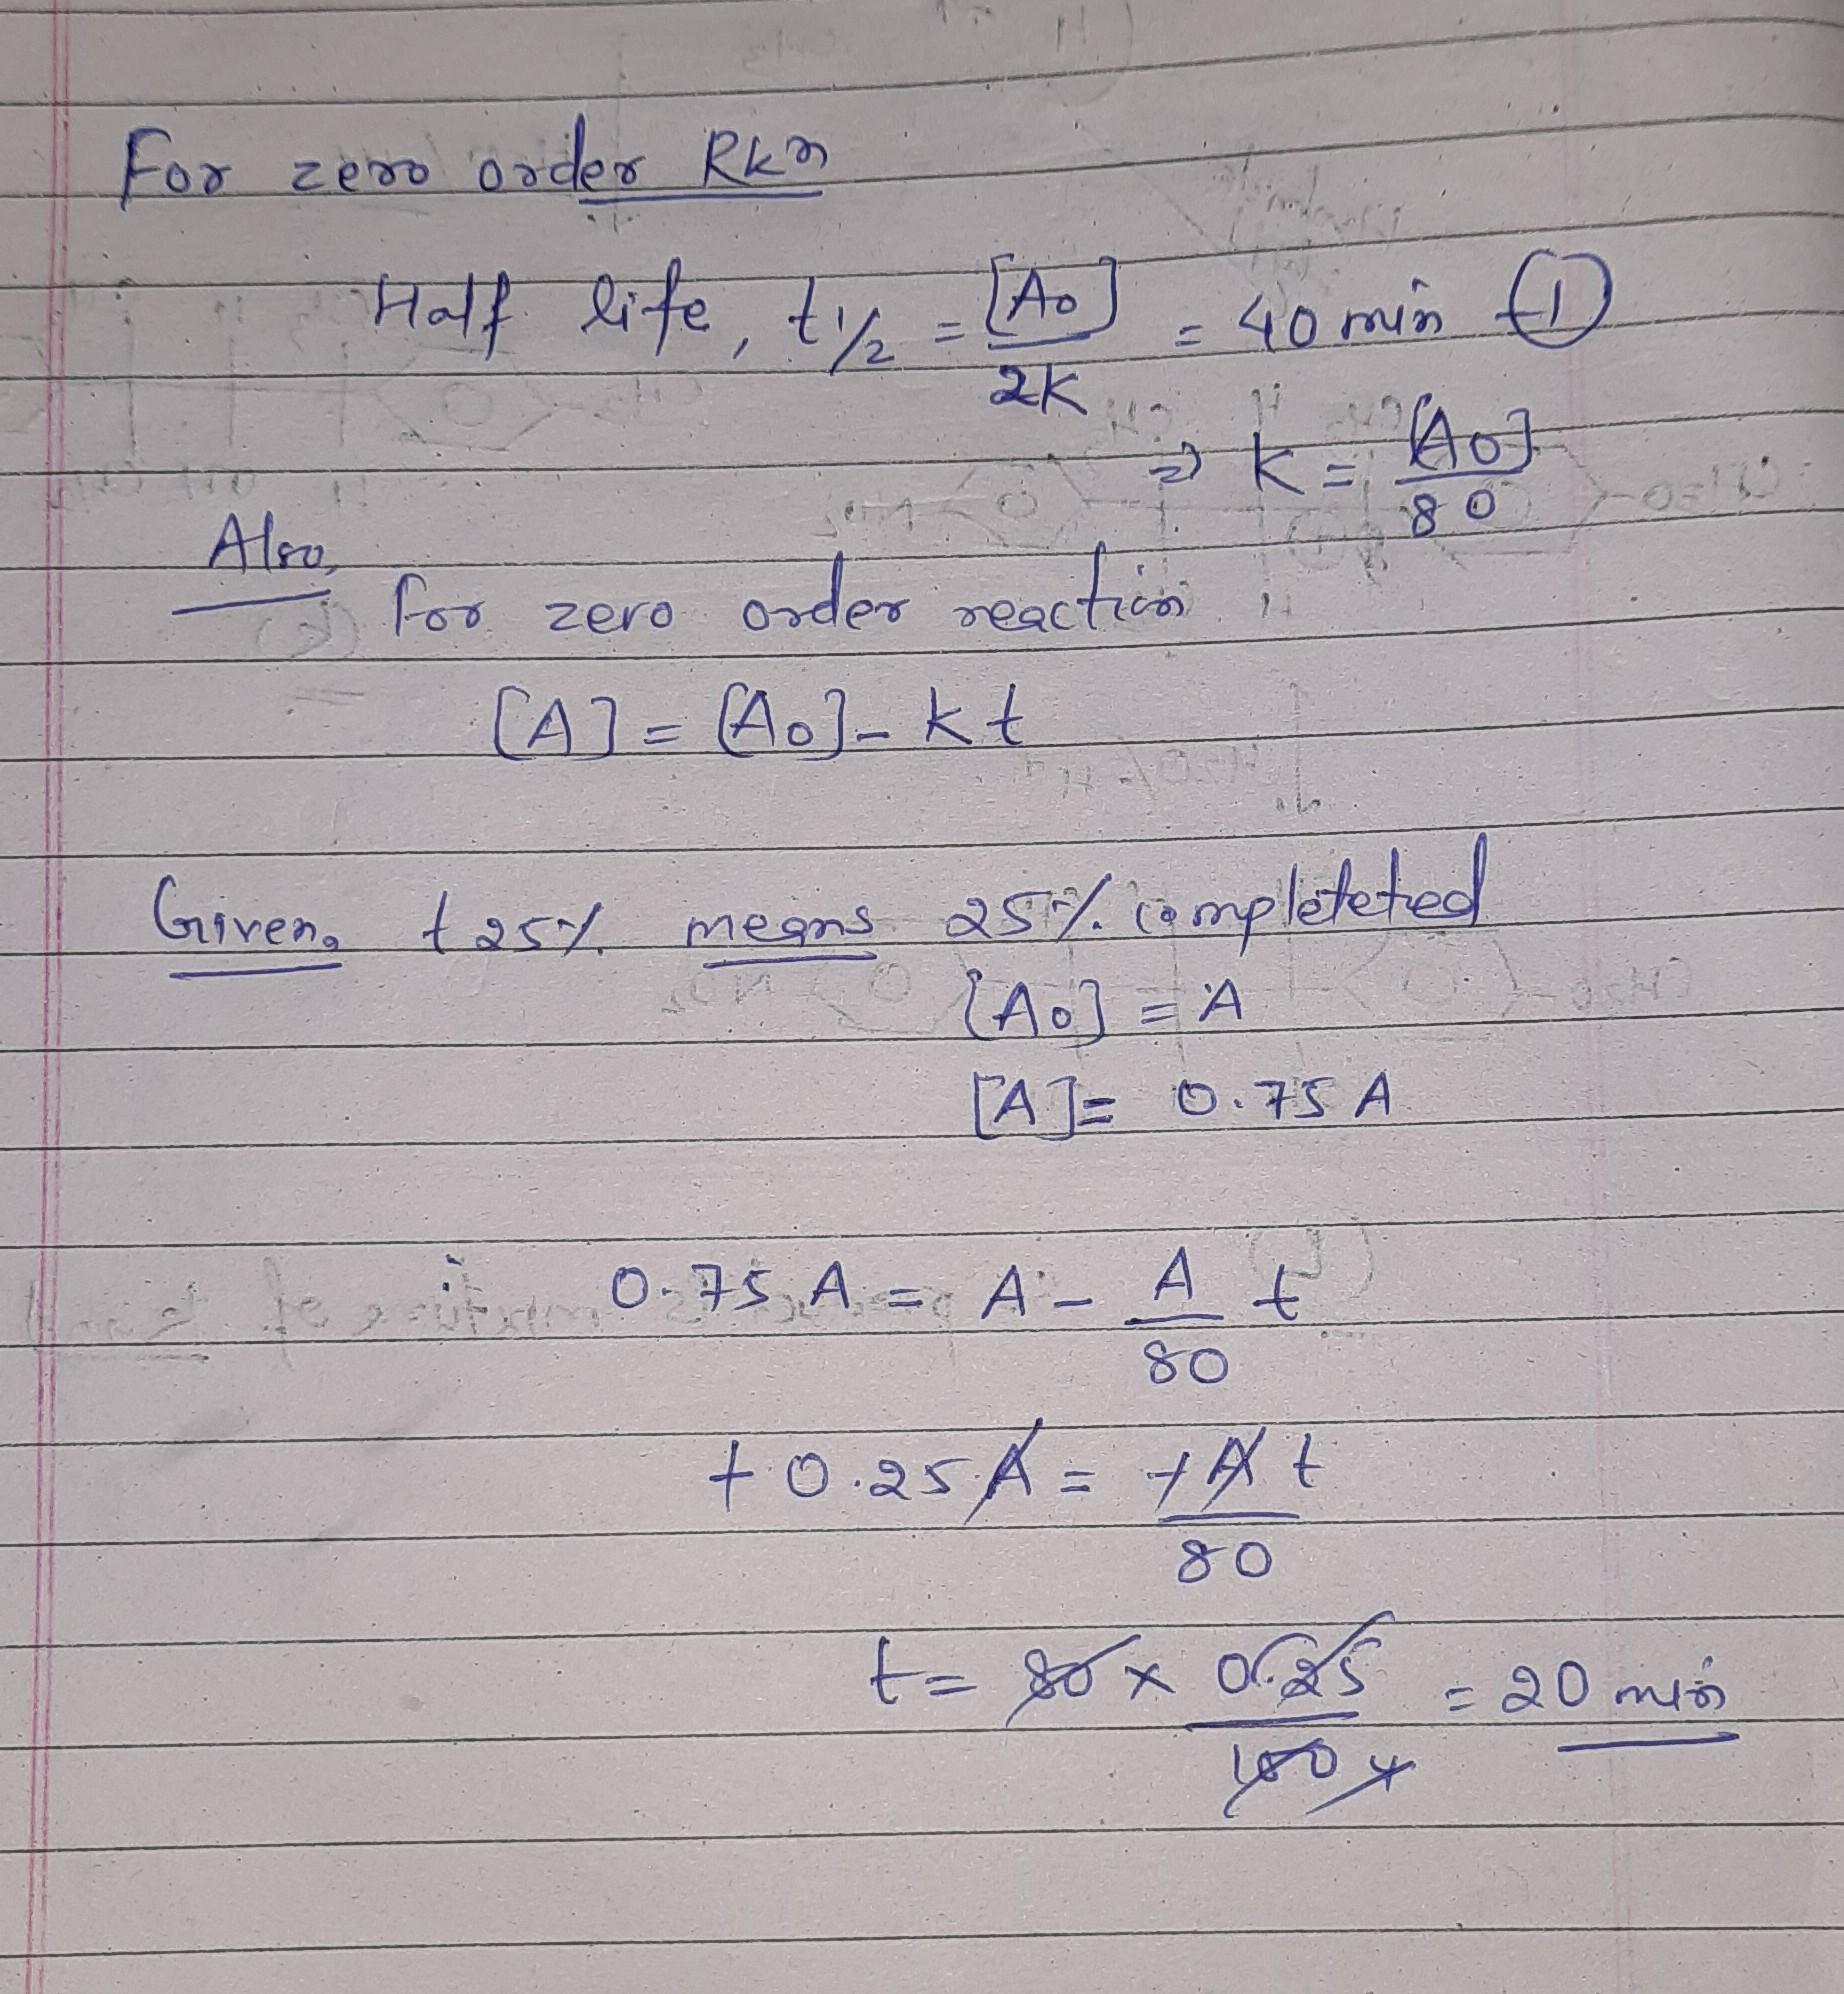 For zero order Rkn
Half life, t1/2 = [A0]/2K = 40 min ①
⇒ K = [A0]/80
Also,
for zero order reaction
[A] = [A0] - kt
Given, t25% means 25% completeted
[A0] = A
[A] = 0.75 A
0.75 A = A - A/80 t
+0.25 A = +A t/80
t = 80 x 0.25/100 4 = 20 min